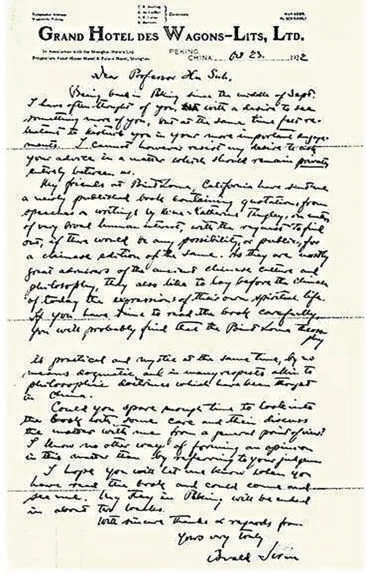 GRAND HOTEL DES WAGONS-LITS, LTD.
In Association with the Shanghai Hotels Ltd.
PEKING,
CHINA Oct 23. 1922
Dear Professor Hu Suh.
Being back in Peking since the middle of Sept.
I have often thought of you, with a desire to see
something more of you, but at the same time felt re-
luctant to disturb you in your more important engage-
ments. I cannot however resist my desire to ask
your advice in a matter which should remain private
entirely between us.
My friends at Point Loma, California have sent me
a newly published book containing quotations from
speeches & writings by Katherine Tingley,
of very broad human interest, with the request to find
out, if there would be any possibility, or public, for
a Chinese edition of the same. As they are mostly
great admirers of the ancient Chinese culture and
philosophy, they also like to lay before the Chinese
of today the expressions of their own spiritual life.
If you have time to read the book carefully,
you will probably find that the Point Loma theoso-
phy
is practical and mystic at the same time, by no
means dogmatic, and in many respects akin to
philosophic doctrines which have been thought
in China.
Could you spare enough time to look into
the book with some care and then discuss
the matter with me from a general point of view?
I know no other way of forming an opinion
in this matter than by referring to your judgment.
I hope you will let me know when you
have read the book and could come and
see me. My stay in Peking will be ended
in about two weeks.
With sincere thanks & regards from
Yours very truly
Osvald Sirén